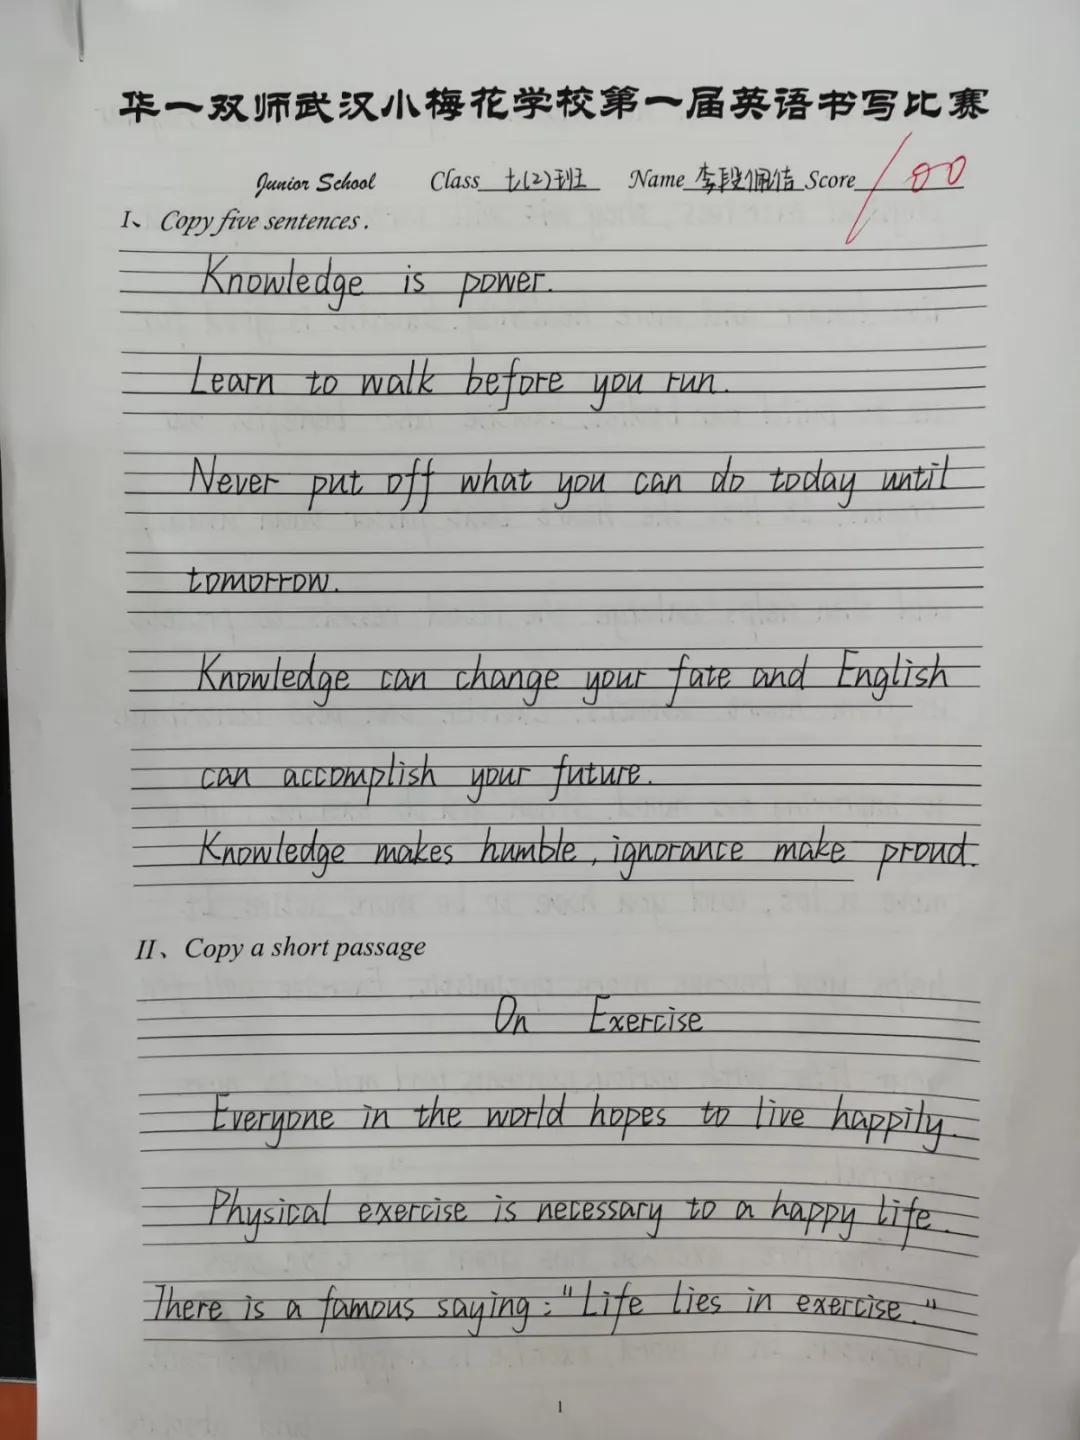 华一双师武汉小梅花学校第一届英语书写比赛
Junior School Class 七(2)班 Name 李段佩佶 Score 100
I、 Copy five sentences.
Knowledge is power.
Learn to walk before you run.
Never put off what you can do today until
tomorrow.
Knowledge can change your fate and English
can accomplish your future.
Knowledge makes humble, ignorance make proud.
II、 Copy a short passage
On Exercise
Everyone in the world hopes to live happily.
Physical exercise is necessary to a happy life.
There is a famous saying: "Life lies in exercise."
1